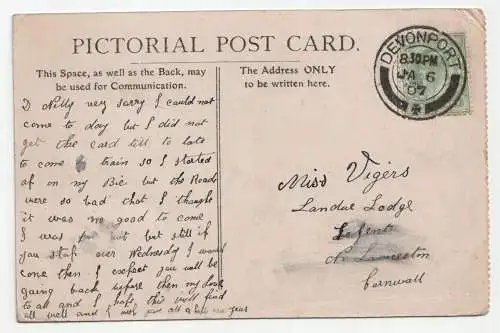 PICTORIAL POST CARD.
This Space, as well as the Back, may
be used for Communication.
The Address ONLY
to be written here.
DEVONPORT
8.30 PM
JA 6
07
D Nelly very sorry I could not
come to day but I did not
get the card till to late
to come train so I started
of on my Bie but the Roads
were so bad that I thought
it was no good to come
I was put out but still if
you stop over Wednesday I would
come then I expect you will be
going back before then my Love
to all and I hope this will find
all well and I wish you all a new year
Miss Vigers
Landue Lodge
Lezent
Nr Launceston
Cornwall